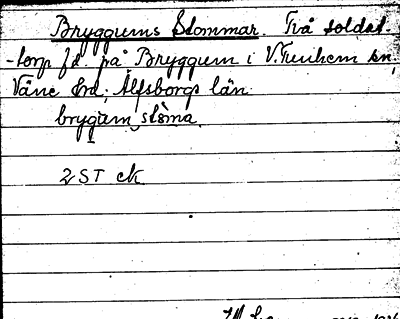 Bryggums Stommar. Två soldat-
-torp f.d. på Bryggum i V. Tunhem sn,
Väne hd, Älfsborgs län.
brygum stoma
2 ST ck